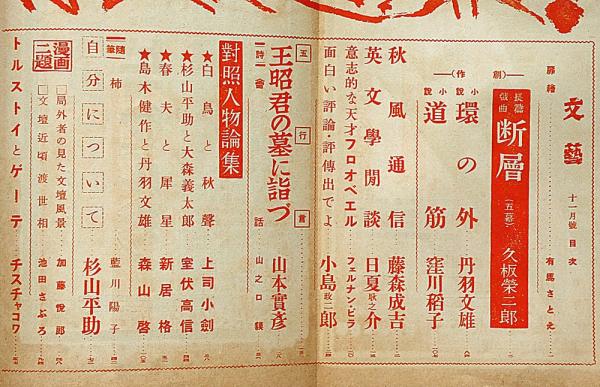 文藝 十二月號目次
扉繪 有馬さとえ
(創作)
長篇戯曲 断層 (五幕) 久板榮二郎
小説 環の外 丹羽文雄
小説 道筋 窪川稻子
秋風通信 藤森成吉
英文學閒談 日夏耿之介
意志的な天才フロオベエル フェルナン・ピラ
面白い評論・評傳出でよ 小島政二郎
五行言
王昭君の墓に詣づ 山本實彦
―詩― 會話 山之口貘
對照人物論集
★白鳥と秋聲 上司小劍
★杉山平助と大森義太郎 室伏高信
★春夫と犀星 新居格
★島木健作と丹羽文雄 森山啓
隨筆 柿 藍川陽子
自分について 杉山平助
漫画二題
□局外者の見た文壇風景 加藤悅郎
□文壇近頃渡世相 池田さぶろ
トルストイとゲーテ チスチャコワ